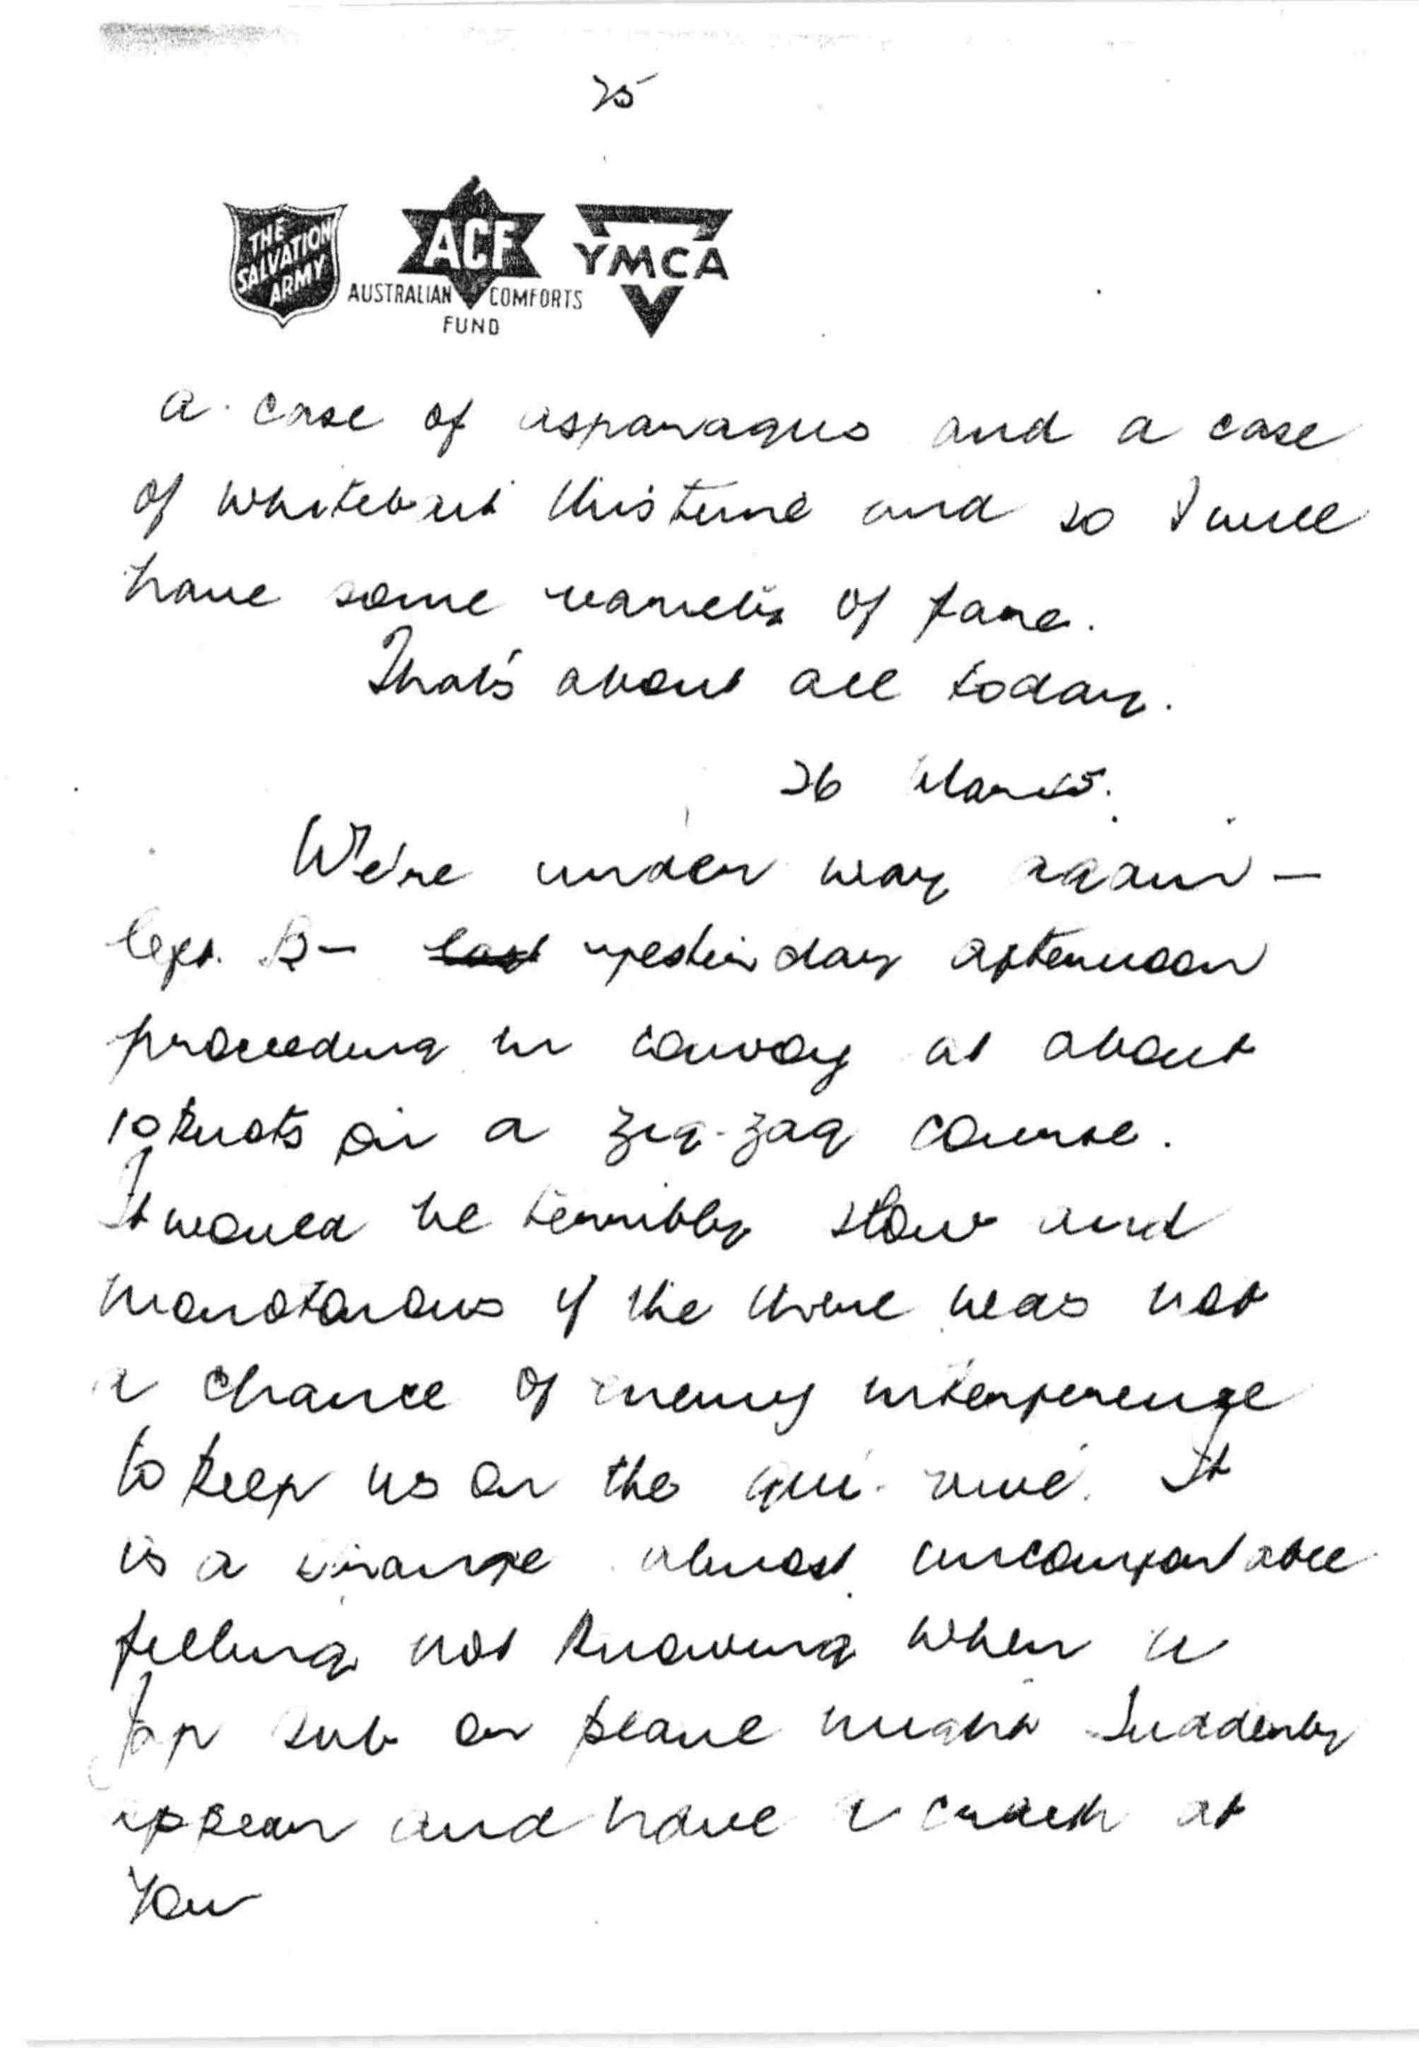 25
THE
SALVATION
ARMY
ACF
AUSTRALIAN COMFORTS
FUND
YMCA
a case of asparagus and a case
of whitebait this time and so I will
have some variety of fare.
That's about all today.
26 March.
We're under way again –
left B– last yesterday afternoon
proceeding in convoy at about
10 knots on a zig-zag course.
It would be terribly slow and
monotonous if the there was not
a chance of enemy interference
to keep us on the qui-vive. It
is a strange almost uncomfortable
feeling not knowing when a
Jap sub or plane might suddenly
appear and have a crack at
you